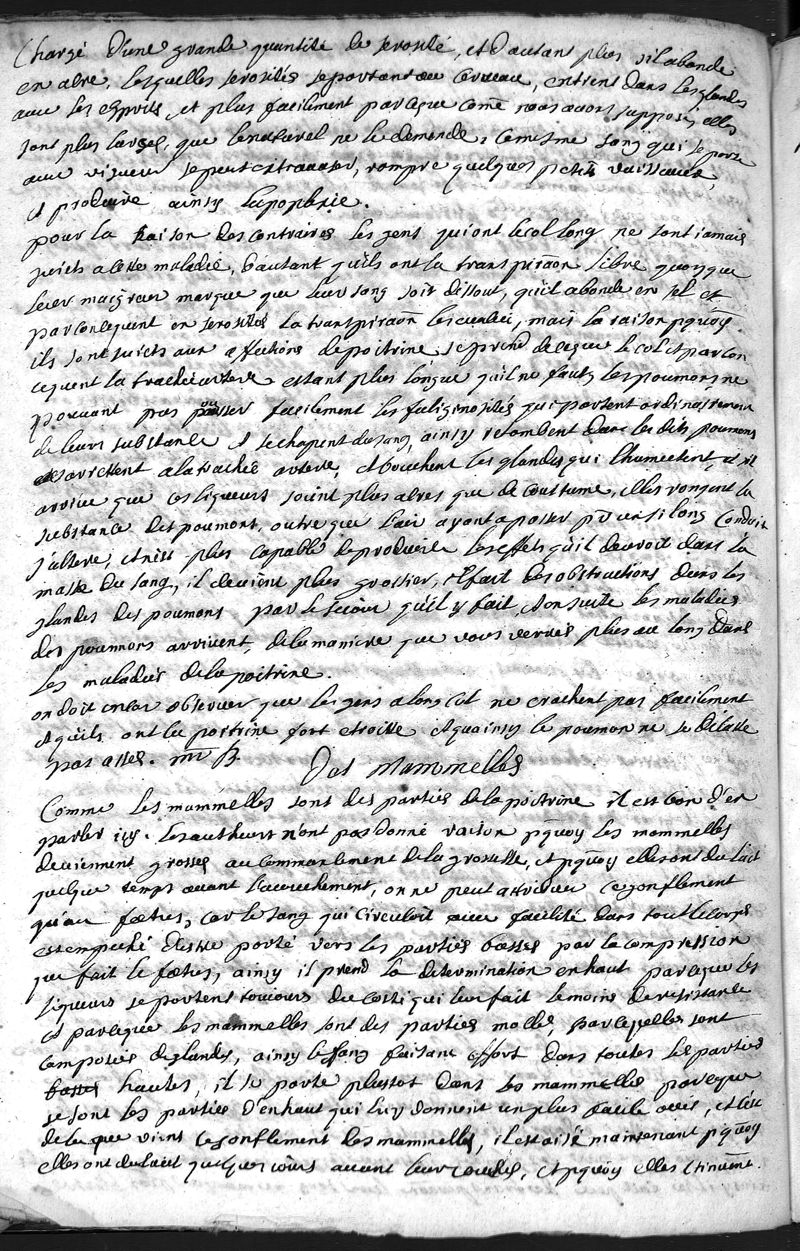 Chargé d'une grande quantité de serosité, et d'autant plus s'il abonde
en acre, lesquelles serosités se portant au cerveau, entrent dans les glandes
avec les esprits, et plus facilement parceque come nous avons supposé, elles
sont plus larges, que le naturel ne le demande, ce mesme sang qui se porte
avec vigueur se peut extravaser, rompre quelques petits vaisseaux,
et produire ainsy l'apoplexie.
pour la Raison des contraires les gens qui ont le col long ne sont iamais
suiets a cette maladie, d'autant qu'ils ont la transpiraon libre quoyque
leur maigreur marque que leur sang soit dissout, qu'il abonde en sel et
par consequent en serosités la transpiraon les evacue, mais la raison pquoy
ils sont suiets aux affections de poitrine se prend de ceque le col et par con
sequent la trachée artere estant plus longue qu'il ne faut, les poumons ne
pouvant pas pousser facilement les fuliginosités qui partent ordinairement
de leur substance et s'echapent du sang, ainsy retombent dans les dits poumons
et s'arrettent a la trachée artere, et bouchent les glandes qui l'humectent, et s'il
arrive que ces liqueurs soint plus acres que de coustume, elles rongent la
substance des poumons, outre que l'air ayant a passer pr un si long conduit
s'altere, et n'est plus capable de produire les effets qu'il devroit dans la
masse du sang, il devient plus grossier, et fait des obstructions dans les
glandes des poumons par le seiour qu'il y fait, et en suite les maladies
des poumons arrivent, de la maniere que vous verrés plus au long dans
les maladies de la poitrine.
on doit encor observer que les gens a long col ne crachent pas facilement
et qu'ils ont la poitrine fort etroitte et qu'ainsy le poumon ne se dilatte
pas assés.
Des Mammelles
Comme les mammelles sont des parties de la poitrine il est bon d'en
parler icy. les autheurs n'ont pas donné raison pquoy les mammelles
deviennent grosses au commancement de la grossesse, et pquoy elles ont du lait
quelque temps avant l'accouchement, on ne peut attribuer ce gonflement
qu'au foetus, car le sang qui circuloit avec facilité dans tout le corps
est empeché d'estre porté vers les parties basses par la compression
que fait le foetus, ainsy il prend la determination en haut parceque les
liqueurs se portent toujours du costé qui leur fait le moins de resistance
et parceque les mammelles sont des parties molles, parcequelles sont
composées de glandes, ainsy le sang faisant effort dans toutes les parties
hautes, il se porte plustot dans les mammelles parceque
ce sont les parties d'enhaut qui luy donnent un plus facile accés, et c'est
de la que vient ce gonflement des mammelles, il est aisé maintenant pquoy
elles ont du lait quelques iours avant leur couches, et pquoy elles